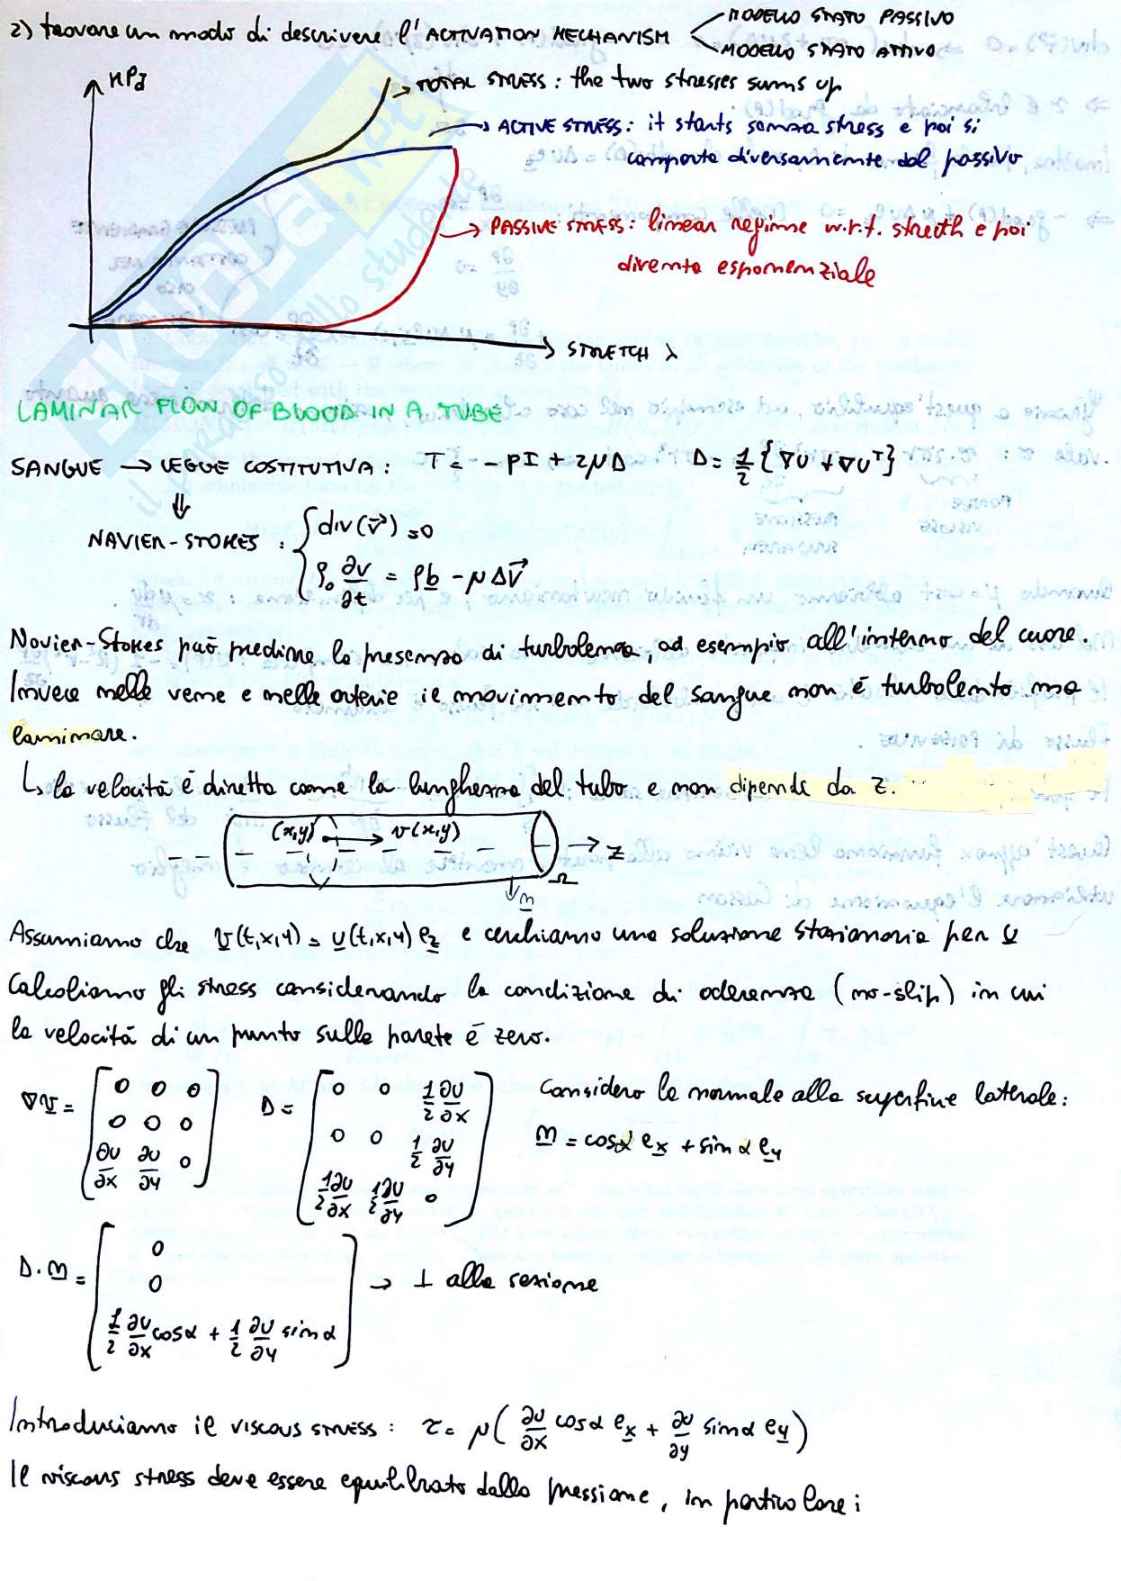 2) trovare un modo di descrivere l'ACTIVATION MECHANISM
MODELLO STATO PASSIVO
MODELLO STATO ATTIVO
KPa
TOTAL STRESS: the two stresses sums up
ACTIVE STRESS: it starts senza stress e poi si
comporta diversamente dal passivo
PASSIVE STRESS: linear regime w.r.t. streth e poi
diventa esponenziale
STRETCH λ
LAMINAR FLOW OF BLOOD IN A TUBE
SANGUE → LEGGE COSTITUTIVA: T = -pI + 2μD D = 1/2 {∇U + ∇U^T}
⇓
NAVIER-STOKES: { div(v⃗) = 0
ρ₀ ∂v/∂t = ρb - μΔv⃗
Navier-Stokes può predire la presenza di turbolenza, ad esempio all'interno del cuore.
Invece nelle vene e nelle arterie il movimento del sangue non è turbolento ma
laminare.
↳ la velocità è diretta come la lunghezza del tubo e non dipende da z.
(x,y) → v(x,y) → z
n Ω
Assumiamo che v(t,x,y) = v(t,x,y) e_z e cerchiamo una soluzione stazionaria per v
Calcoliamo gli stress considerando la condizione di aderenza (no-slip) in cui
la velocità di un punto sulla parete è zero.
∇v = [0 0 0; 0 0 0; ∂v/∂x ∂v/∂y 0] D = [0 0 1/2 ∂v/∂x; 0 0 1/2 ∂v/∂y; 1/2 ∂v/∂x 1/2 ∂v/∂y 0] Considero la normale alla superfine laterale:
n = cosα e_x + sinα e_y
D·n = [0; 0; 1/2 ∂v/∂x cosα + 1/2 ∂v/∂y sinα] → ⊥ alla sezione
Introduciamo il viscous stress: τ = μ(∂v/∂x cosα e_x + ∂v/∂y sinα e_y)
Il viscous stress deve essere equilibrato dalla pressione, in particolare: